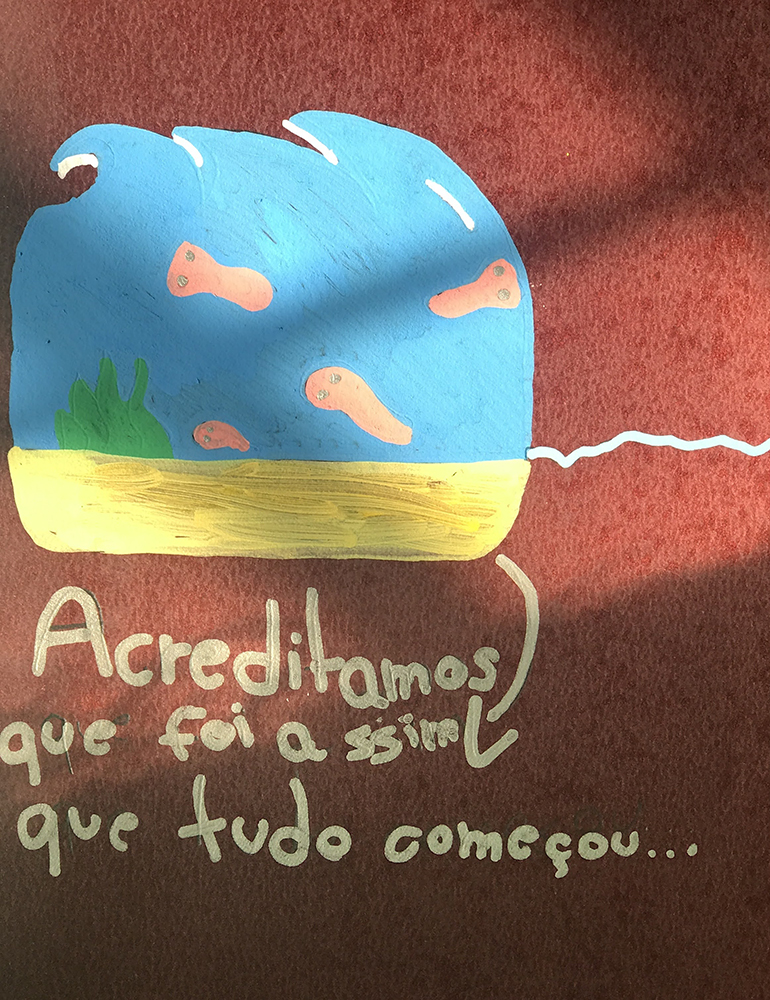 Acreditamos
que foi a ssim
que tudo começou...